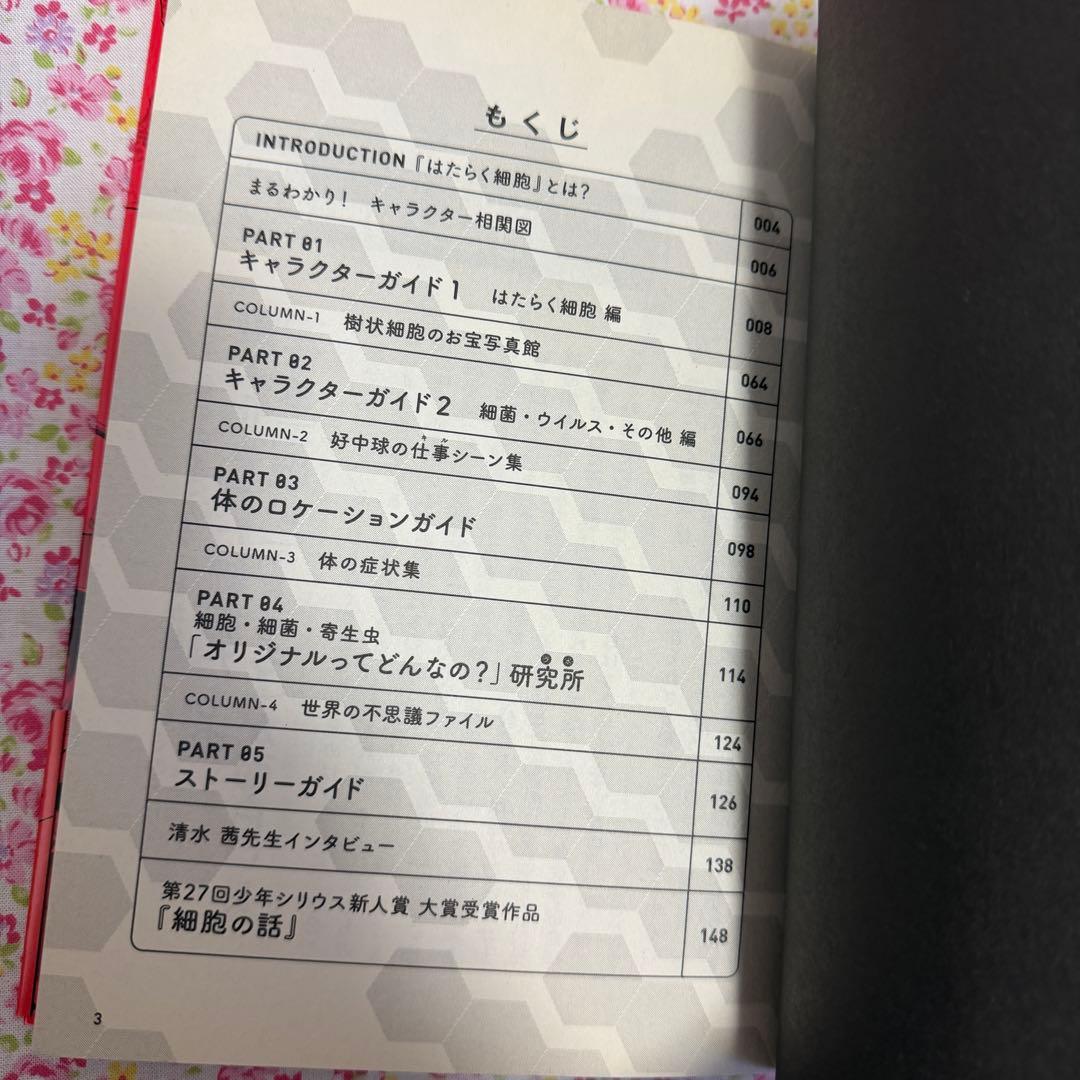 もくじ
INTRODUCTION『はたらく細胞』とは? 004
まるわかり! キャラクター相関図 006
PART 01
キャラクターガイド1 はたらく細胞 編 008
COLUMN-1 樹状細胞のお宝写真館 064
PART 02
キャラクターガイド2 細菌・ウイルス・その他 編 066
キル
COLUMN-2 好中球の仕事シーン集 094
PART 03
体のロケーションガイド 098
COLUMN-3 体の症状集 110
PART 04
細胞・細菌・寄生虫
「オリジナルってどんなの?」研究所 114
COLUMN-4 世界の不思議ファイル 124
PART 05
ストーリーガイド 126
清水 茜先生インタビュー 138
第27回少年シリウス新人賞 大賞受賞作品
『細胞の話』 148
3